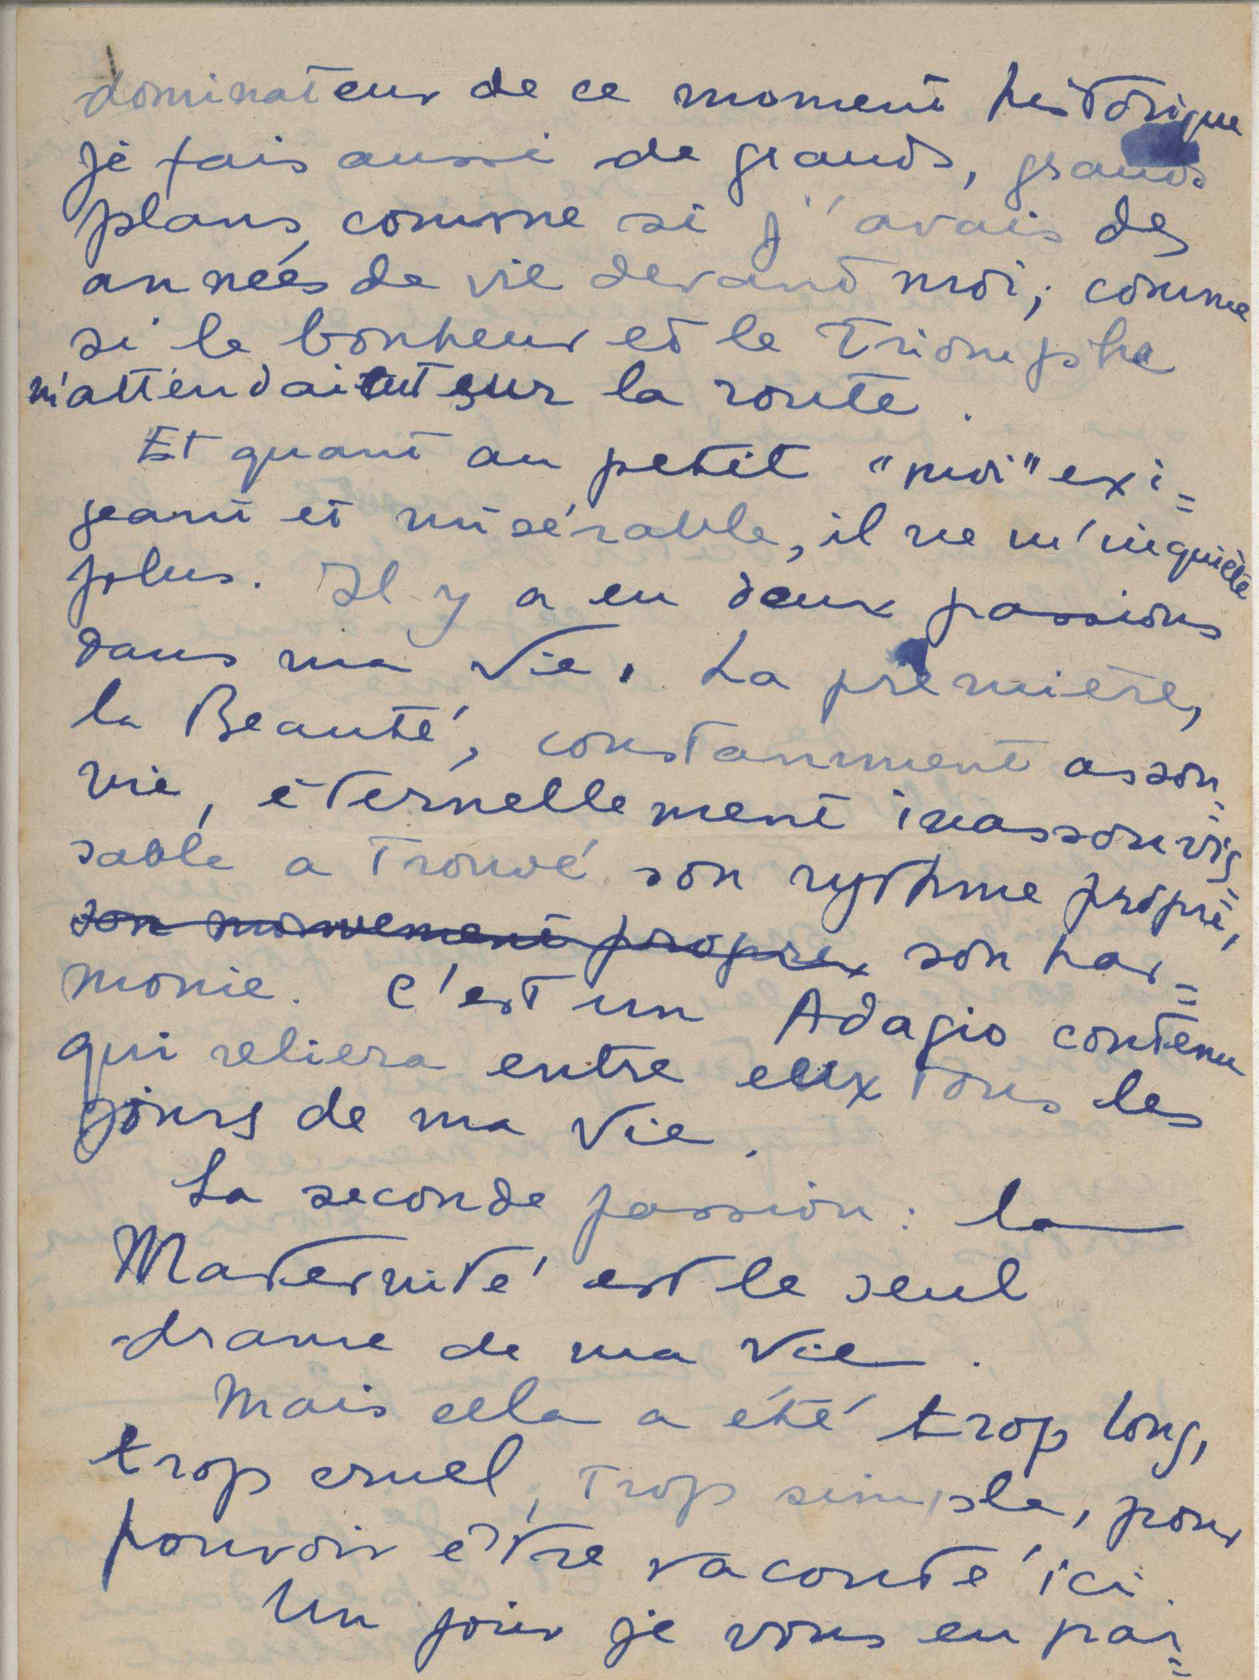 dominateur de ce moment historique
je fais aussi de grands, grands
plans, comme si j'avais des
années de vie devant moi; comme
si le bonheur et le Triomphe
m'attendaient sur la route.
Et quant au petit "moi" exi=
geant et misérable, il ne m'inquiète
plus. Il y a eu deux passions
dans ma vie. La première,
la Beauté, constamment assou=
vie, éternellement inassouvis=
sable a trouvé son rythme propre,
son mouvement propre son har=
monie. C'est un Adagio contenu
qui reliera entre eux tous les
jours de ma vie.
La seconde passion: la
Maternité est le seul
drame de ma vie.
Mais cela a été trop long,
trop cruel, trop simple, pour
pouvoir être raconté ici.
Un jour je vous en par=